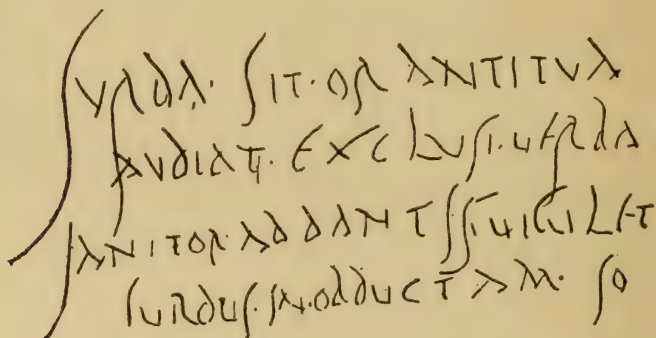 SVRDA · SIT · ORANTI TVA
AVDIAT · EXCLVSI · VERDA
IANITOR · AD DANTIS VIGILET
SVRDVS · IN · OBDVCTAM · SO